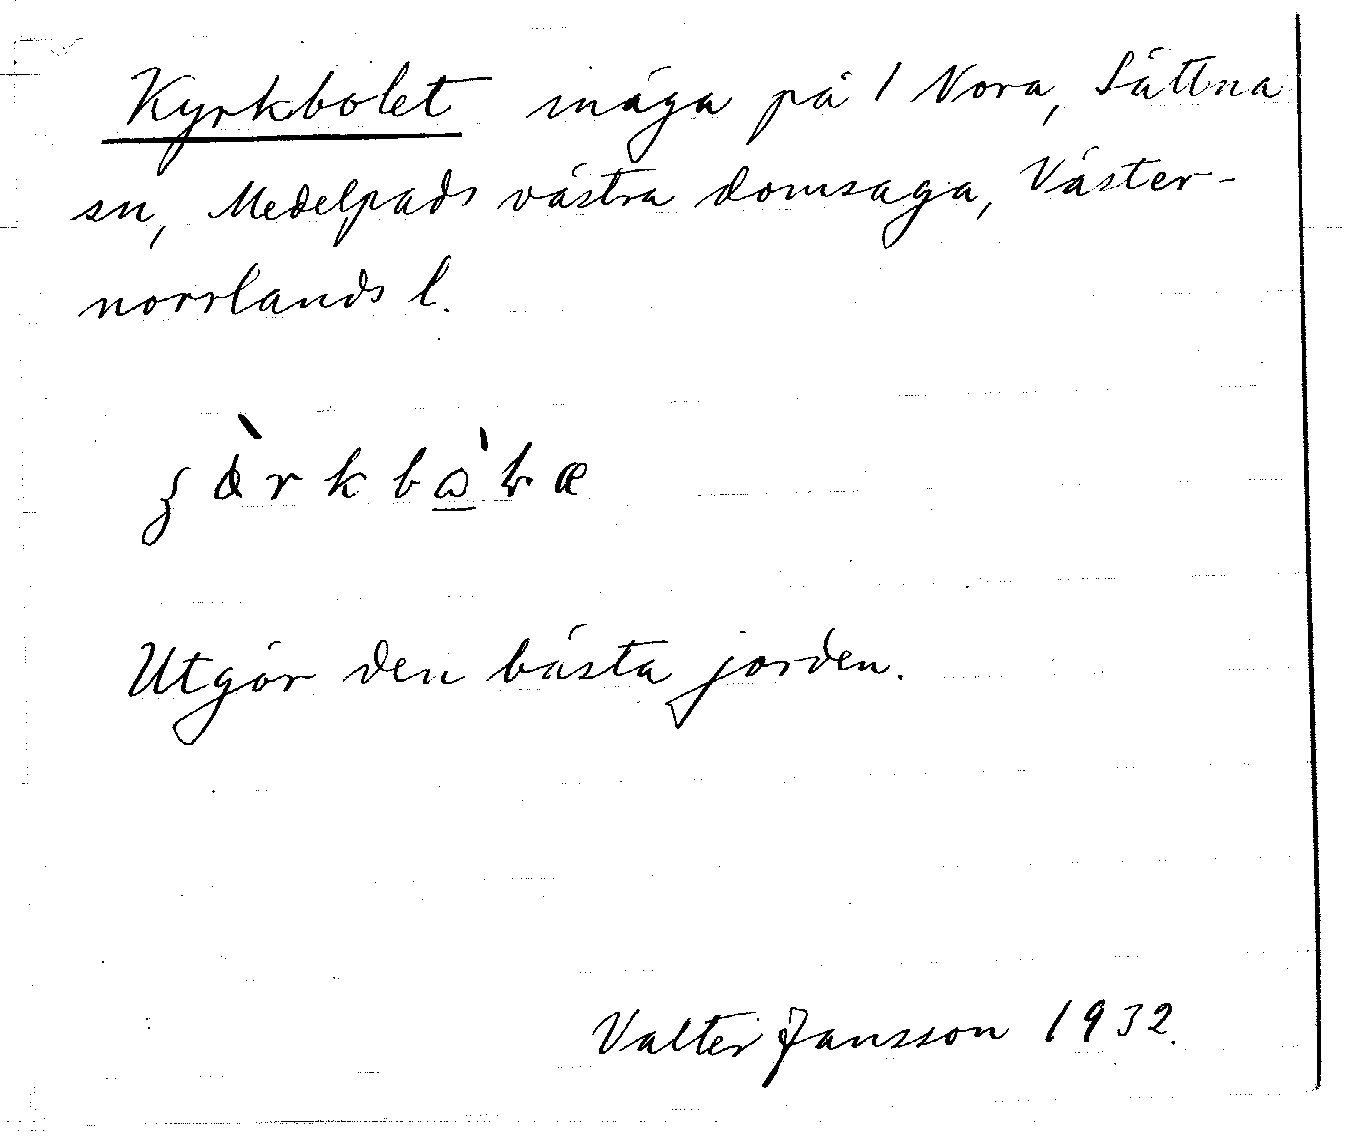 Kyrkbolet inäga på 1 Nora, Sättna
sn, Medelpads västra domsaga, Väster-
norrlands l.
Utgör den bästa jorden.
Valter Jansson 1932.